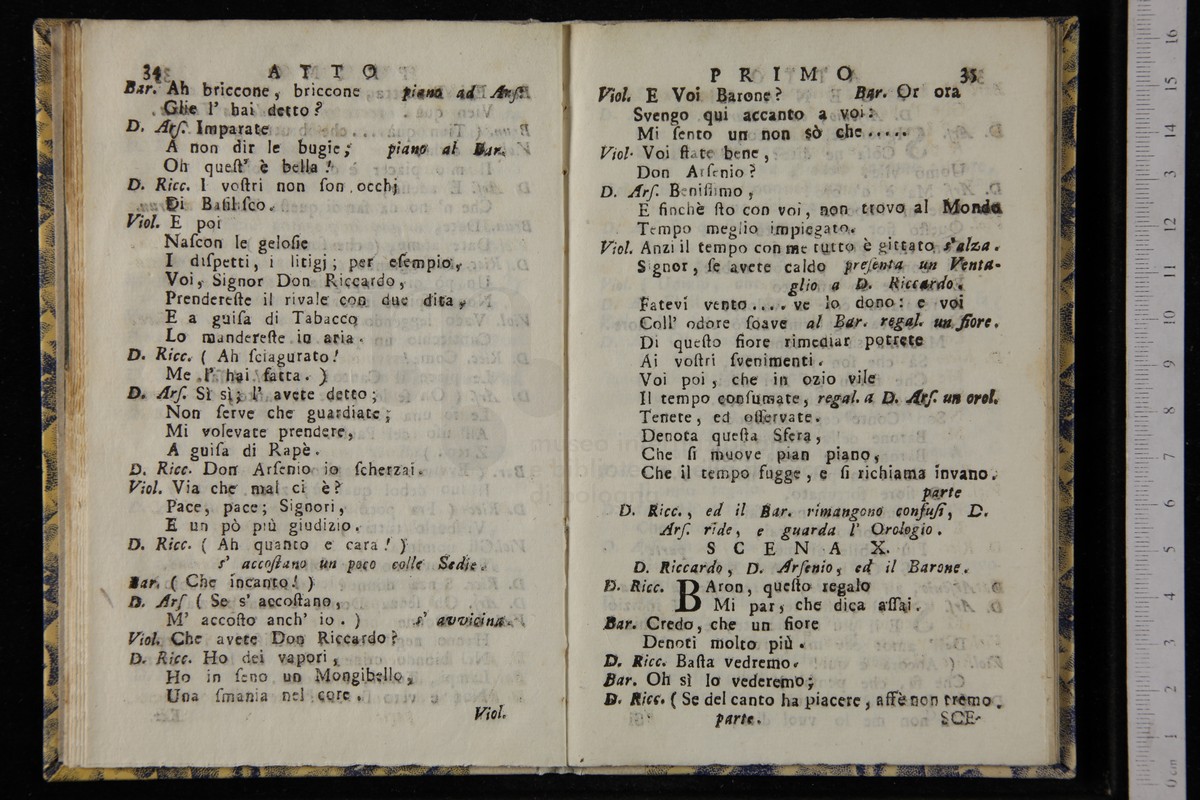 34 ATTO
Bar. Ah briccone, briccone piano ad Arſ.
Glie l' hai detto?
D. Arſ. Imparate
A non dir le bugie; piano al Bar.
Oh queſt' è bella!
D. Ricc. I voſtri non ſon occhj
Di Baſiliſco.
Viol. E poi
Naſcon le geloſie
I diſpetti, i litigj; per eſempio,
Voi, Signor Don Riccardo,
Prendereſte il rivale con due dita,
E a guiſa di Tabacco
Lo mandereſte in aria.
D. Ricc. ( Ah ſciagurato!
Me l' hai fatta. )
D. Arſ. Sì sì; l' avete detto;
Non ſerve che guardiate;
Mi volevate prendere,
A guiſa di Rapè.
D. Ricc. Don Arſenio io ſcherzai.
Viol. Via che mal ci è?
Pace, pace; Signori,
E un pò più giudizio.
D. Ricc. ( Ah quanto e cara! )
s' accoſtano un poco colle Sedie.
Bar. ( Che incanto! )
D. Arſ ( Se s' accoſtano,
M' accoſto anch' io. ) s' avvicina.
Viol. Che avete Don Riccardo?
D. Ricc. Ho dei vapori,
Ho in ſeno un Mongibello,
Una ſmania nel core.
Viol.
PRIMO 35
Viol. E Voi Barone? Bar. Or ora
Svengo qui accanto a voi:
Mi ſento un non sò che.....
Viol. Voi ſtate bene,
Don Arſenio?
D. Arſ. Beniſſimo,
E finchè ſto con voi, non trovo al Mondo
Tempo meglio impiegato.
Viol. Anzi il tempo con me tutto è gittato s'alza.
Signor, ſe avete caldo preſenta un Venta-
glio a D. Riccardo.
Fatevi vento.... ve lo dono: e voi
Coll' odore ſoave al Bar. regal. un fiore.
Di queſto fiore rimediar potrete
Ai voſtri ſvenimenti.
Voi poi, che in ozio vile
Il tempo conſumate, regal. a D. Arſ. un orol.
Tenete, ed oſſervate.
Denota queſta Sfera,
Che ſi muove pian piano,
Che il tempo fugge, e ſi richiama invano.
parte
D. Ricc., ed il Bar. rimangono confuſi, D.
Arſ. ride, e guarda l' Orologio.
SCENA X.
D. Riccardo, D. Arſenio, ed il Barone.
D. Ricc. BAron, queſto regalo
Mi par, che dica aſſai.
Bar. Credo, che un fiore
Denoti molto più.
D. Ricc. Baſta vedremo.
Bar. Oh sì lo vederemo;
D. Ricc. ( Se del canto ha piacere, affè non tremo.
parte. SCE-
museo in
e bibliote
di bologna